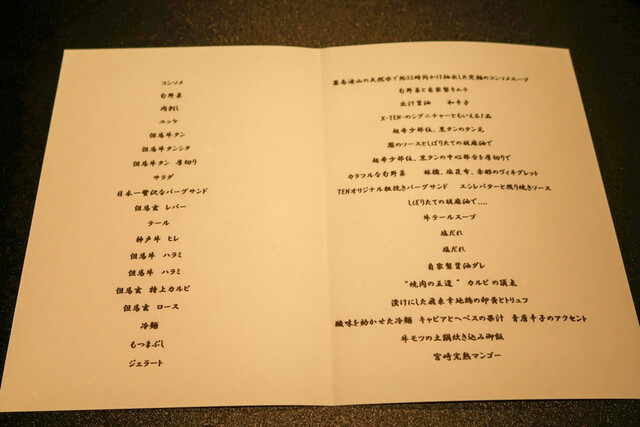 コンソメ
旬野菜
肉刺し
ユッケ
但馬牛タン
但馬牛タンシタ
但馬牛タン 厚切り
サラダ
日本一贅沢なバーグサンド
但馬玄 レバー
テール
神戸牛 ヒレ
但馬牛 ハラミ
但馬牛 ハラミ
但馬玄 特上カルビ
但馬玄 ロース
冷麺
もつまぶし
ジェラート
の天然水で約55時間かけ抽出した究極のコンソメスープ
旬野菜と自家製キムチ
出汁醤油 和辛子
X-TEN-のシグニチャーともいえる1皿
超希少部位、黒タンのタン元
葱のソースとしぼりたての胡麻油で
超希少部位、黒タンの中心部分を厚切りで
カラフルな旬野菜 林檎、塩昆布、赤酢のヴィネグレット
TENオリジナル粗挽きバーグサンド エシレバターと照り焼きソース
しぼりたての胡麻油で....
牛テールスープ
塩だれ
塩だれ
自家製醤油ダレ
"焼肉の王道" カルビの頂点
漬けにした飛来幸地鶏の卵黄とトリュフ
酸味を効かせた冷麺 キャビアとヘベスの果汁 青唐辛子のアクセント
牛モツの土鍋炊き込み御飯
宮崎完熟マンゴー